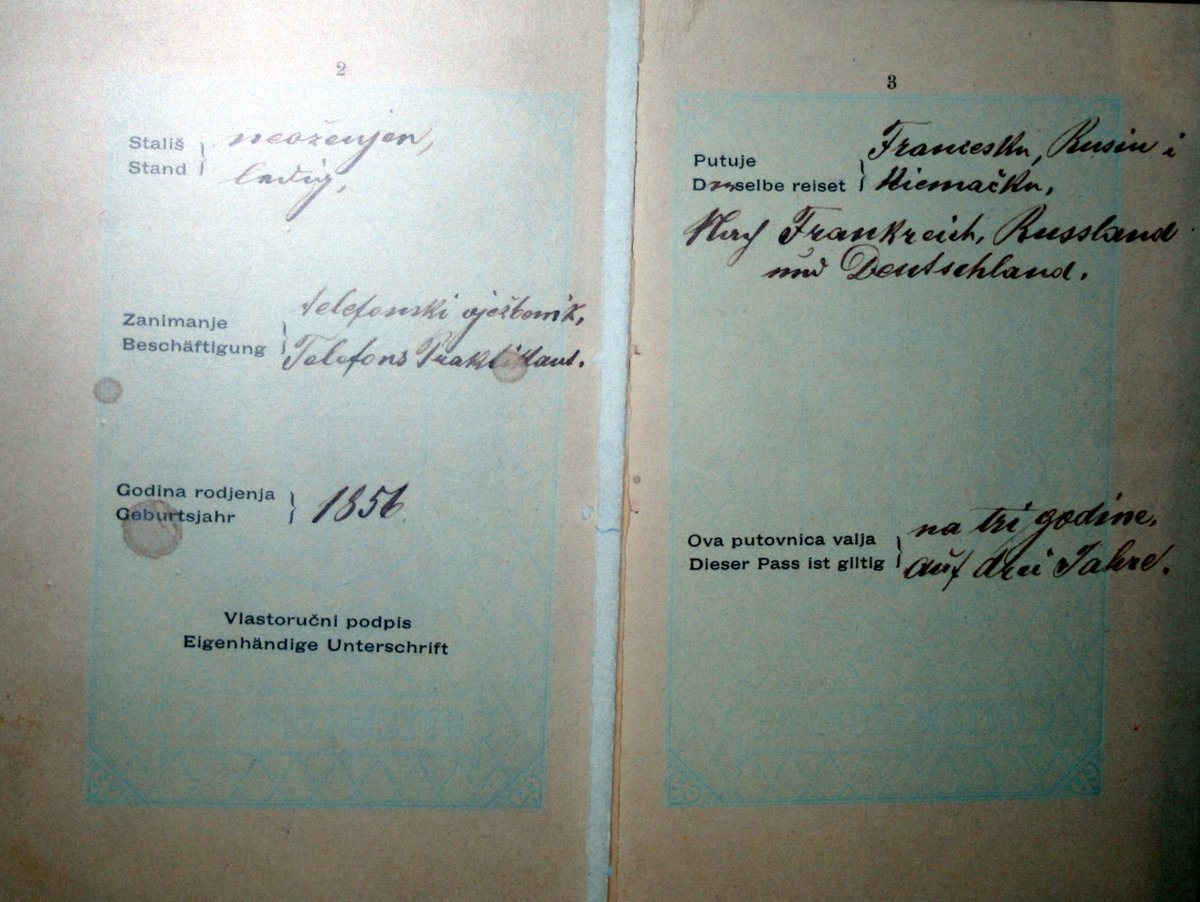 2
Stališ neoženjen,
Stand ledig,
Zanimanje telefonski vježbenik,
Beschäftigung Telefons Praktikant.
Godina rodjenja
Geburtsjahr 1856
Vlastoručni podpis
Eigenhändige Unterschrift
3
Putuje Francesku, Rusiu i
Derselbe reiset Niemačku,
Nach Frankreich, Russland
und Deutschland.
Ova putovnica valja na tri godine.
Dieser Pass ist giltig auf drei Jahre.